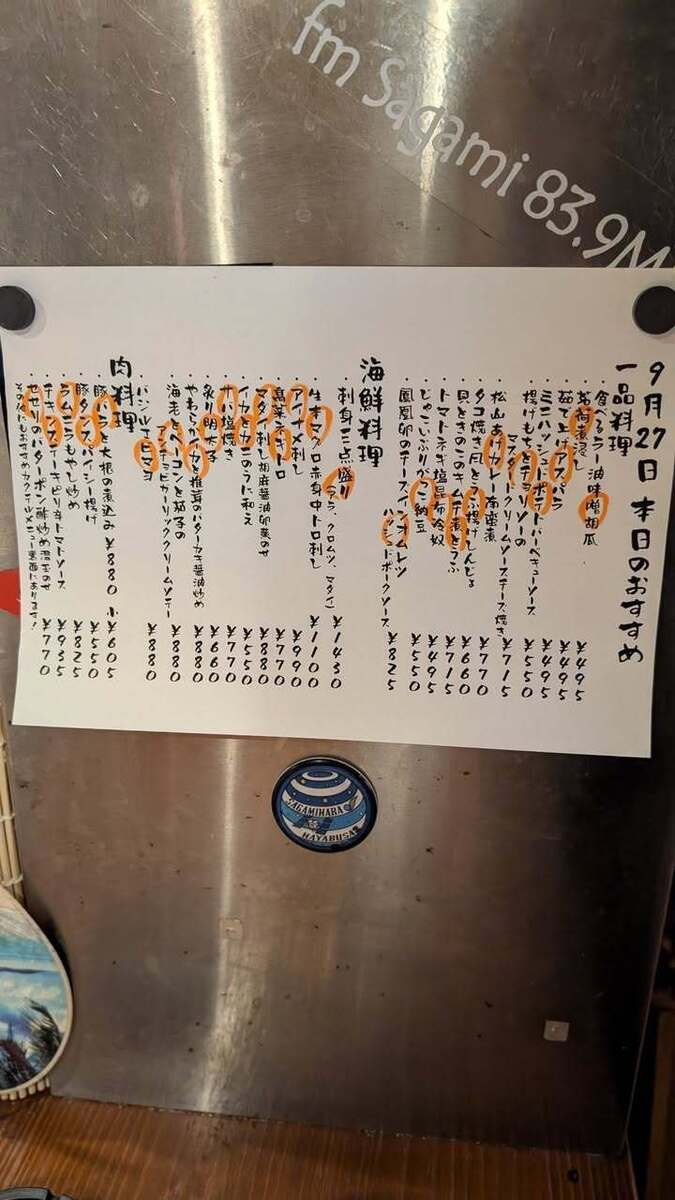 fm Sagami 83.9M
9月27日 本日のおすすめ
一品料理
・食べるラー油味噌胡瓜 ¥495
・茄荷煮浸し ¥495
・茹で上げアスパラ ¥495
・ミニハッシュドポテトバーベキューソース ¥495
・揚げもちとチョリソーの
マスタードクリームソースチーズ焼き ¥715
・松山あげカレー南蛮煮
・タコ焼き風とうふ揚げしんじょ ¥770
・貝ときのこのキムチ煮とうふ ¥660
・トマトネギ塩昆布冷奴 ¥715
・じゃこいぶりがっこ納豆 ¥495
・鳳凰卵のチーズインオムレツ ¥550
ハッシュドポークソース ¥825
海鮮料理
・刺身三点盛り(サワラ、クロムツ、マダイ) ¥1430
・生本マグロ赤身中トロ刺し ¥1100
・アイナメ刺し ¥990
・島菜ネギトロ ¥770
・マダイ刺し胡麻醤油卵黄のせ ¥880
・イカとカニのうに和え ¥550
・サバ塩焼き ¥770
・炙り明太子 ¥660
・やわらかイカと椎茸のバターカキ醤油炒め ¥880
・海老とベーコンと茄子の
アンチョビガーリッククリームソテー ¥880
・バジルエビマヨ ¥880
肉料理
・豚バラと大根の煮込み ¥880 小¥605
・豚タンスパイシー揚げ ¥550
・ラムニラもやし炒め ¥825
・チキンステーキピリ辛トマトソース ¥935
・セセリのバターポン酢炒め温玉のせ ¥770
その他にもおすすめカクテルメニュー裏面にあります!
SAGAMIHARA
HAYABUSA